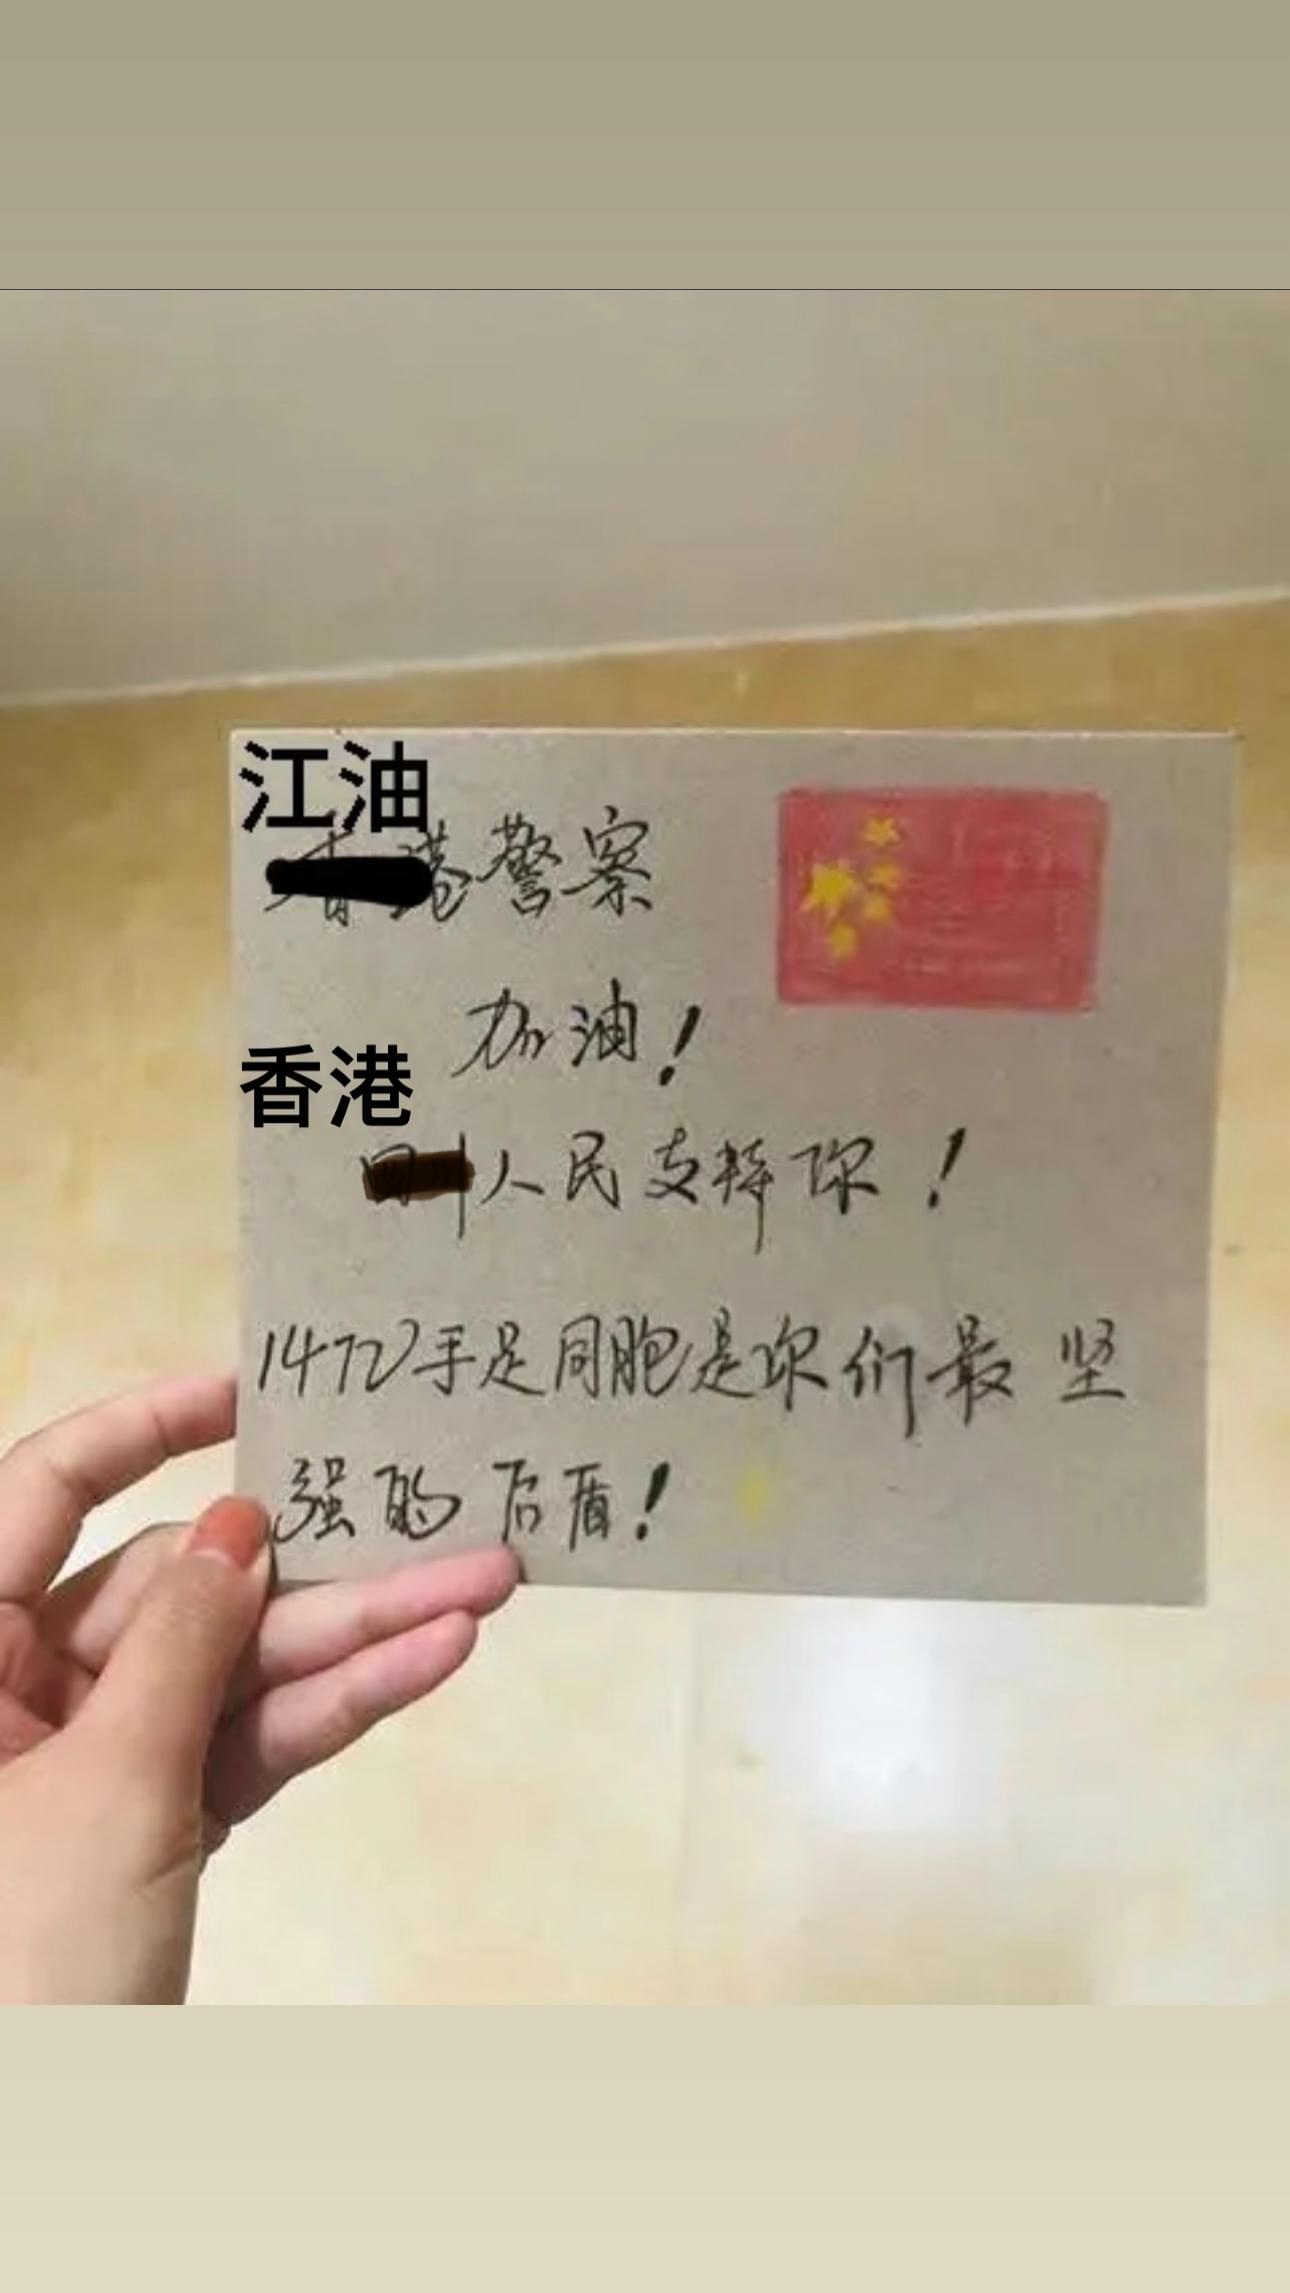 江油
香港警察
加油！
香港
四川人民支持你！
14亿手足同胞是你们最坚
强的后盾！